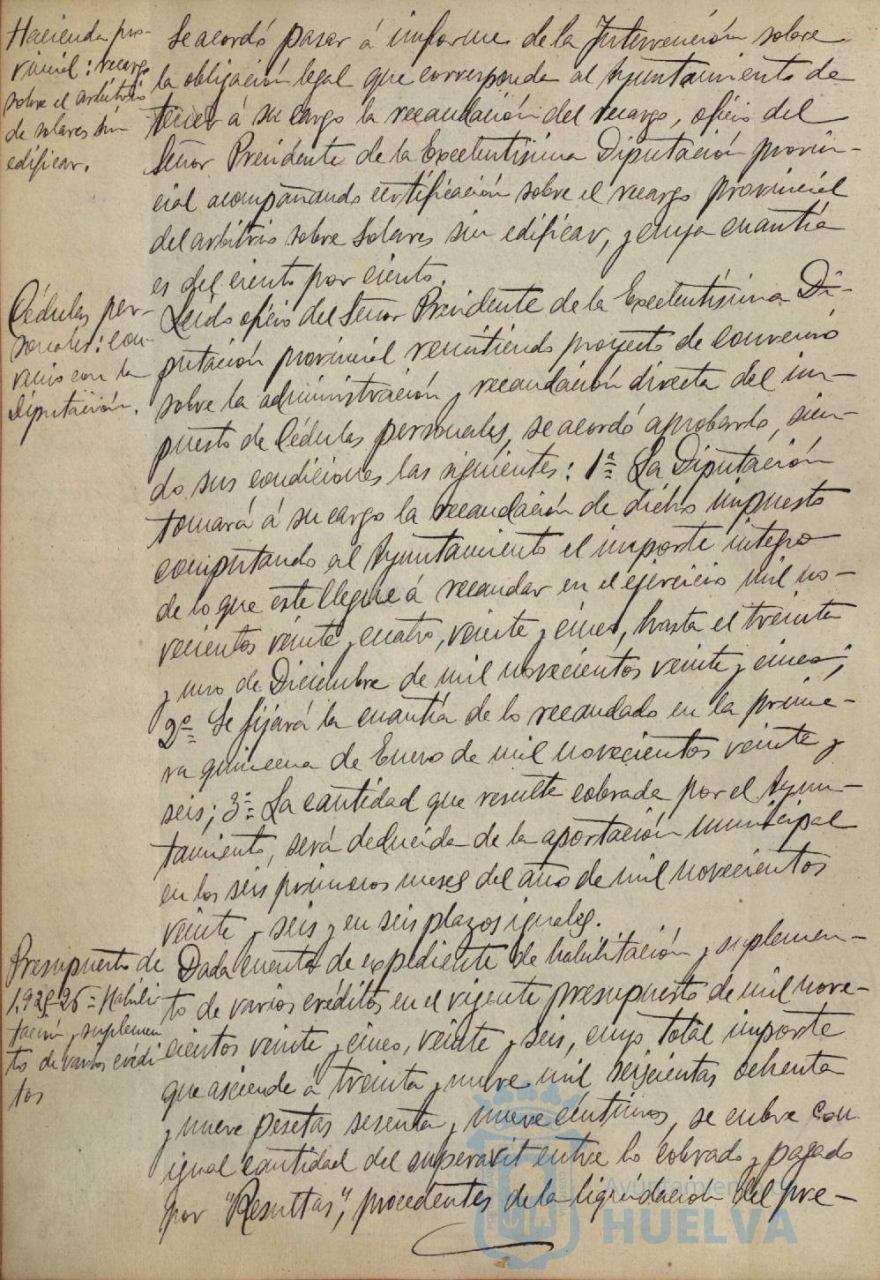 Hacienda pro-
vincial: recargo
sobre el arbitrio
de solares sin
edificar.
Se acordó pasar á informe de la Intervención sobre
la obligación legal que corresponda al Ayuntamiento de
tener á su cargo la recaudación del recargo, oficio del
Señor Presidente de la Excelentísima Diputación provin-
cial acompañando certificación sobre el recargo provincial
del arbitrio sobre Solares sin edificar, y cuya cuantía
es del ciento por ciento.
Cédulas per-
sonales: con-
venio con la
Diputación.
Leído oficio del Señor Presidente de la Excelentísima Di-
putación provincial remitiendo proyecto de convenio
sobre la administración y recaudación directa del im-
puesto de Cédulas personales, se acordó aprobarlo, sien-
do sus condiciones las siguientes: 1ª La Diputación
tomará á su cargo la recaudación de dicho impuesto
computando al Ayuntamiento el importe íntegro
de lo que este llegue á recaudar en el ejercicio mil no-
vecientos veinte y cuatro, veinte y cinco, hasta el treinta
y uno de Diciembre de mil novecientos veinte y cinco;
2ª Se fijará la cuantía de lo recaudado en la prime-
ra quincena de Enero de mil novecientos veinte y
seis; 3ª La cantidad que resulte cobrada por el Ayun-
tamiento, será deducida de la aportación municipal
en los seis primeros meses del año de mil novecientos
veinte y seis y en seis plazos iguales.
Presupuesto de
1,925-26= Habili-
tación y suplemen
to de varios crédi
tos
Dada cuenta de expediente de habilitación y suplemen-
to de varios créditos en el vigente presupuesto de mil nove-
cientos veinte y cinco, veinte y seis, cuyo total importe
que asciende á treinta y nueve mil seiscientas ochenta
y nueve pesetas sesenta y nueve céntimos, se cubre con
igual cantidad del superavit entre lo cobrado y pagado
por "Resultas", procedentes de la liquidación del pre-
Ayuntamiento de
HUELVA